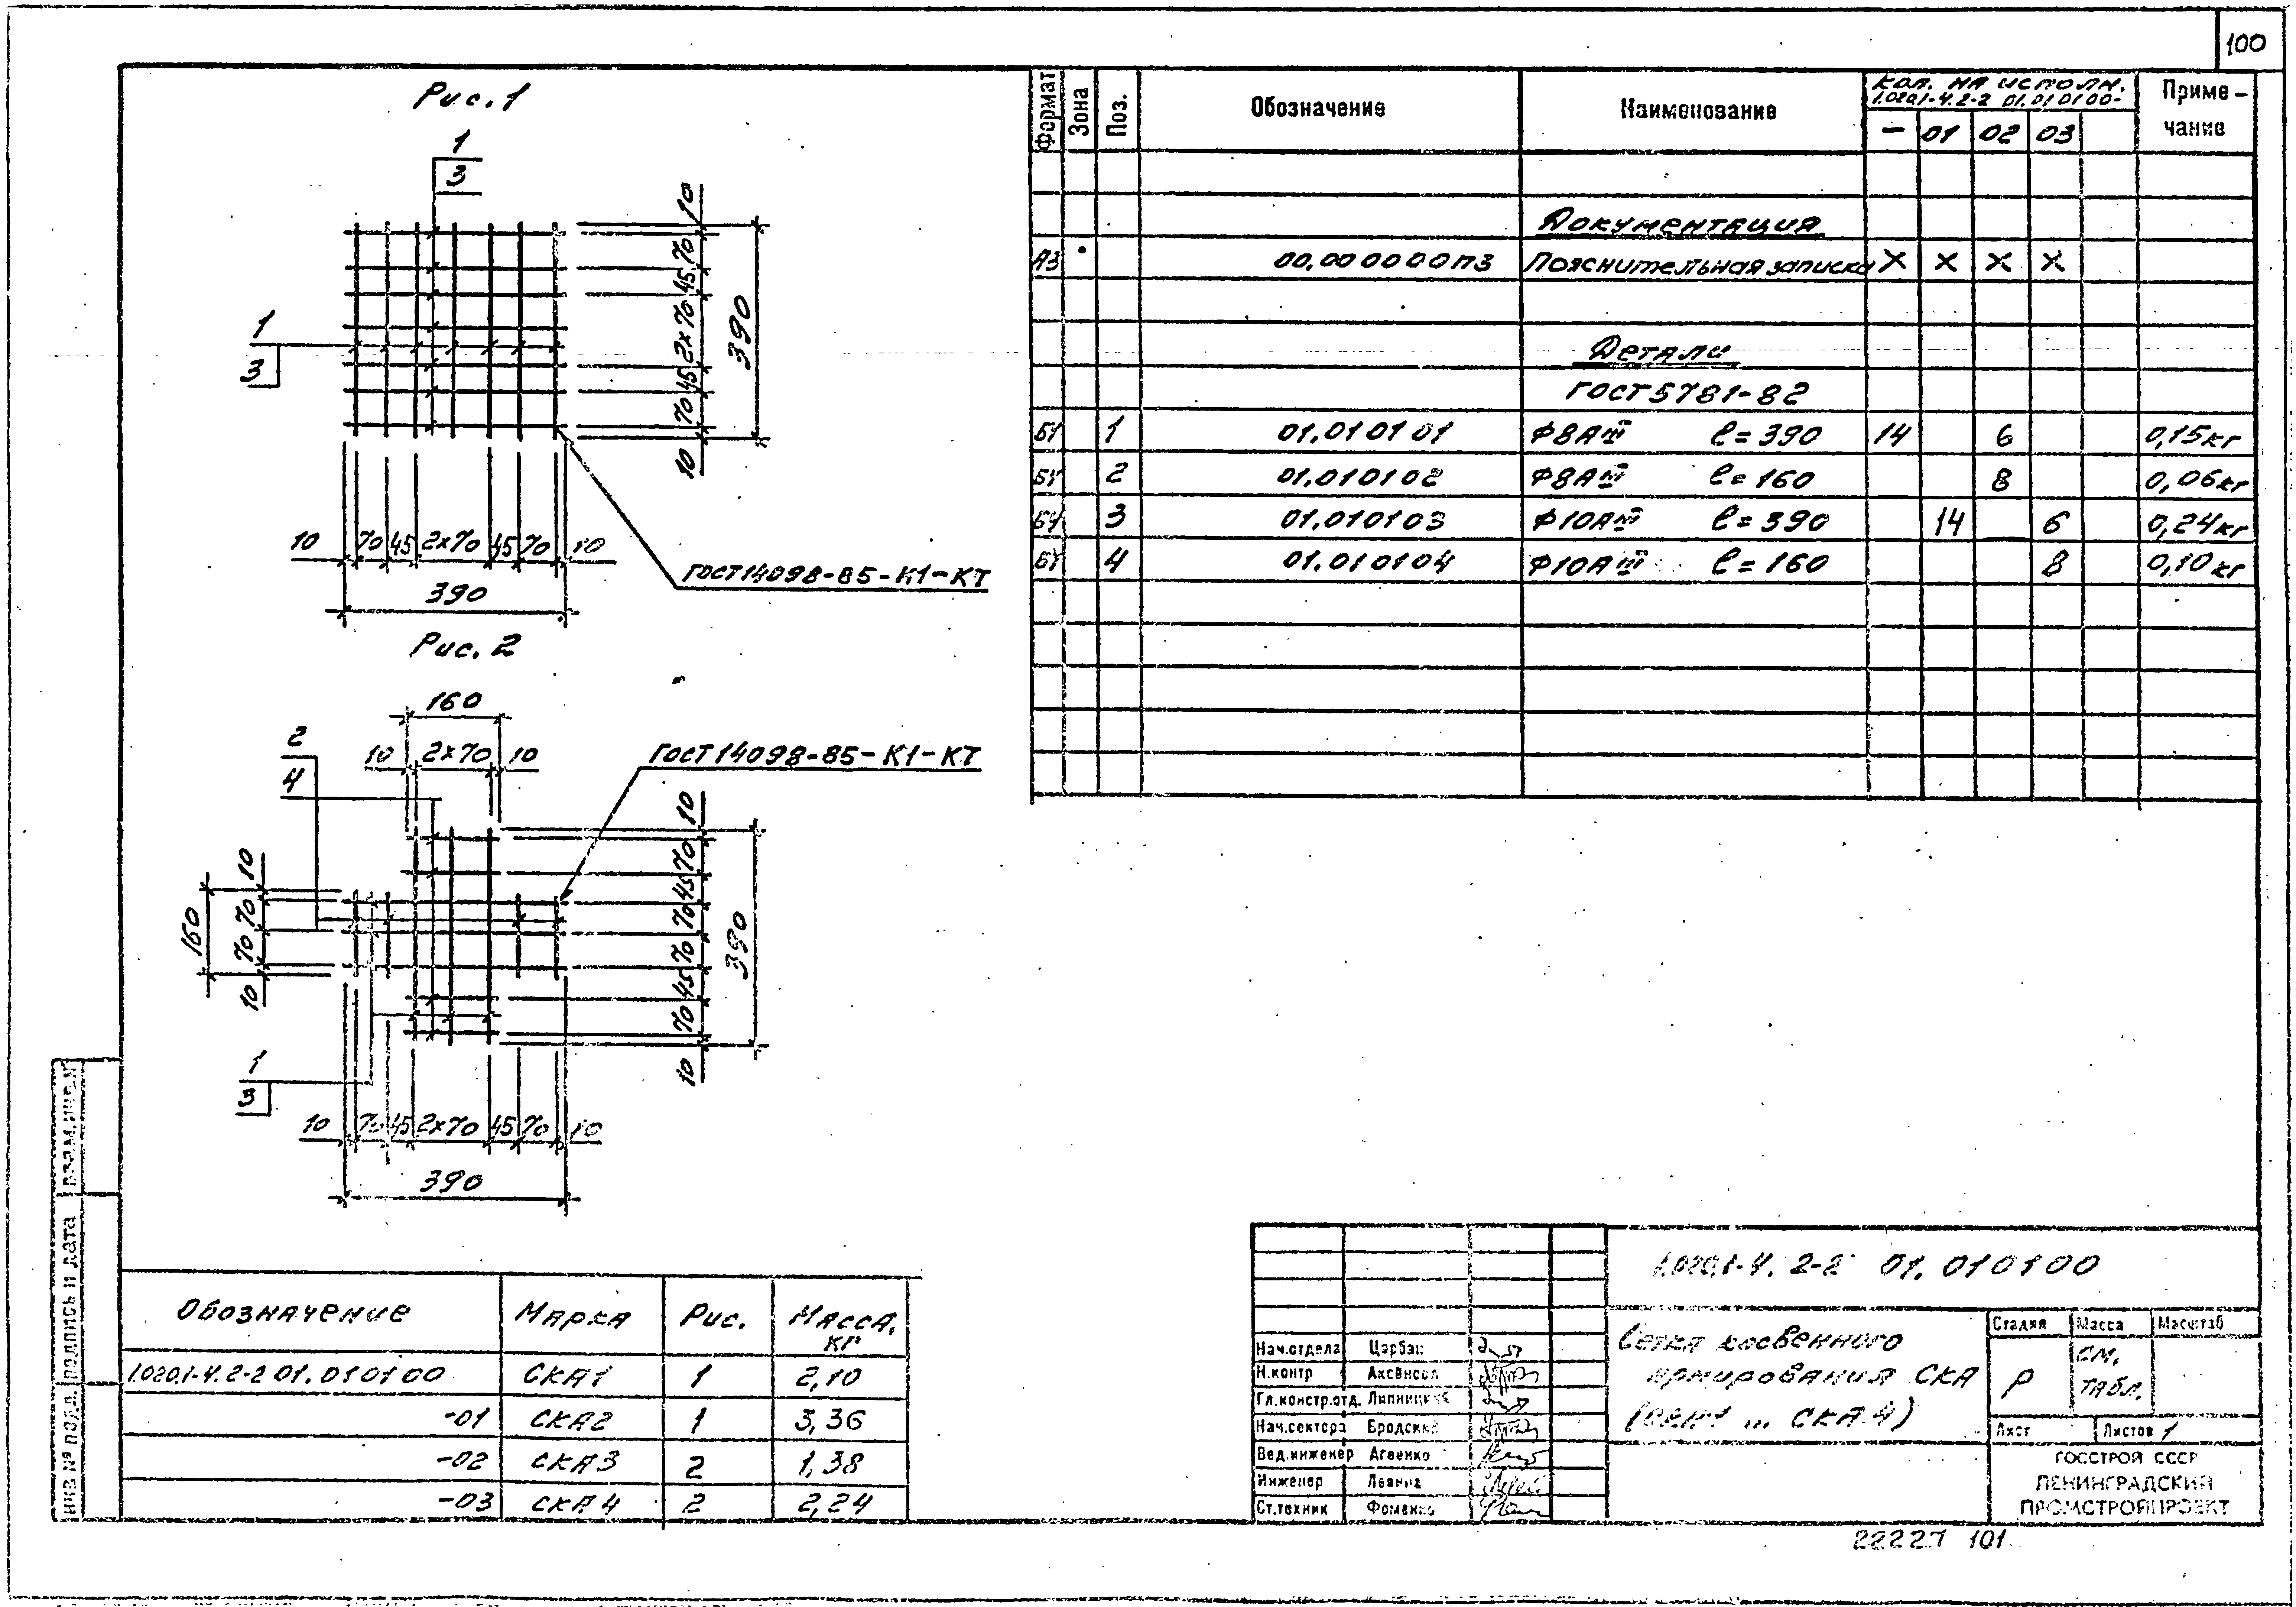 100
Рис. 1
1
3
1
3
10
70
45
2х70
45
70
10
390
10 70 45 2х70 45 70 10
390
ГОСТ 14098-85-К1-КТ
Рис. 2
160
10 2х70 10
2
4
ГОСТ 14098-85-К1-КТ
10
70
70
10
160
10
70
45
70
70
45
70
10
390
1
3
10 70 45 2х70 45 70 10
390
Формат Зона Поз. Обозначение Наименование Кол. на исполн. 1.020.1-4.2-2 01.010100- Приме-чание
– 01 02 03
Документация
А3 00.000000ПЗ Пояснительная записка Х Х Х Х
Детали
ГОСТ 5781-82
БЧ 1 01.010101 Ф8АIII ℓ=390 14 6 0,15кг
БЧ 2 01.010102 Ф8АIII ℓ=160 8 0,06кг
БЧ 3 01.010103 Ф10АIII ℓ=390 14 6 0,24кг
БЧ 4 01.010104 Ф10АIII ℓ=160 8 0,10кг
Обозначение Марка Рис. Масса, кг
1.020.1-4.2-2 01.010100 СКА1 1 2,10
-01 СКА2 1 3,36
-02 СКА3 2 1,38
-03 СКА4 2 2,24
Инв.№ подл. Подпись и дата Взам.инв.№
1.020.1-4. 2-2 01.010100
Сетка косвенного
армирования СКА
(СКА1 ... СКА4)
Стадия Масса Масштаб
Р см. табл.
Лист Листов 1
ГОССТРОЙ СССР
ЛЕНИНГРАДСКИЙ
ПРОМСТРОЙПРОЕКТ
Нач.отдела Царбак
Н.контр Аксёнова
Гл.констр.отд. Липницкий
Нач.сектора Бродский
Вед.инженер Агеенко
Инженер Левина
Ст.техник Фоменко
22227 101